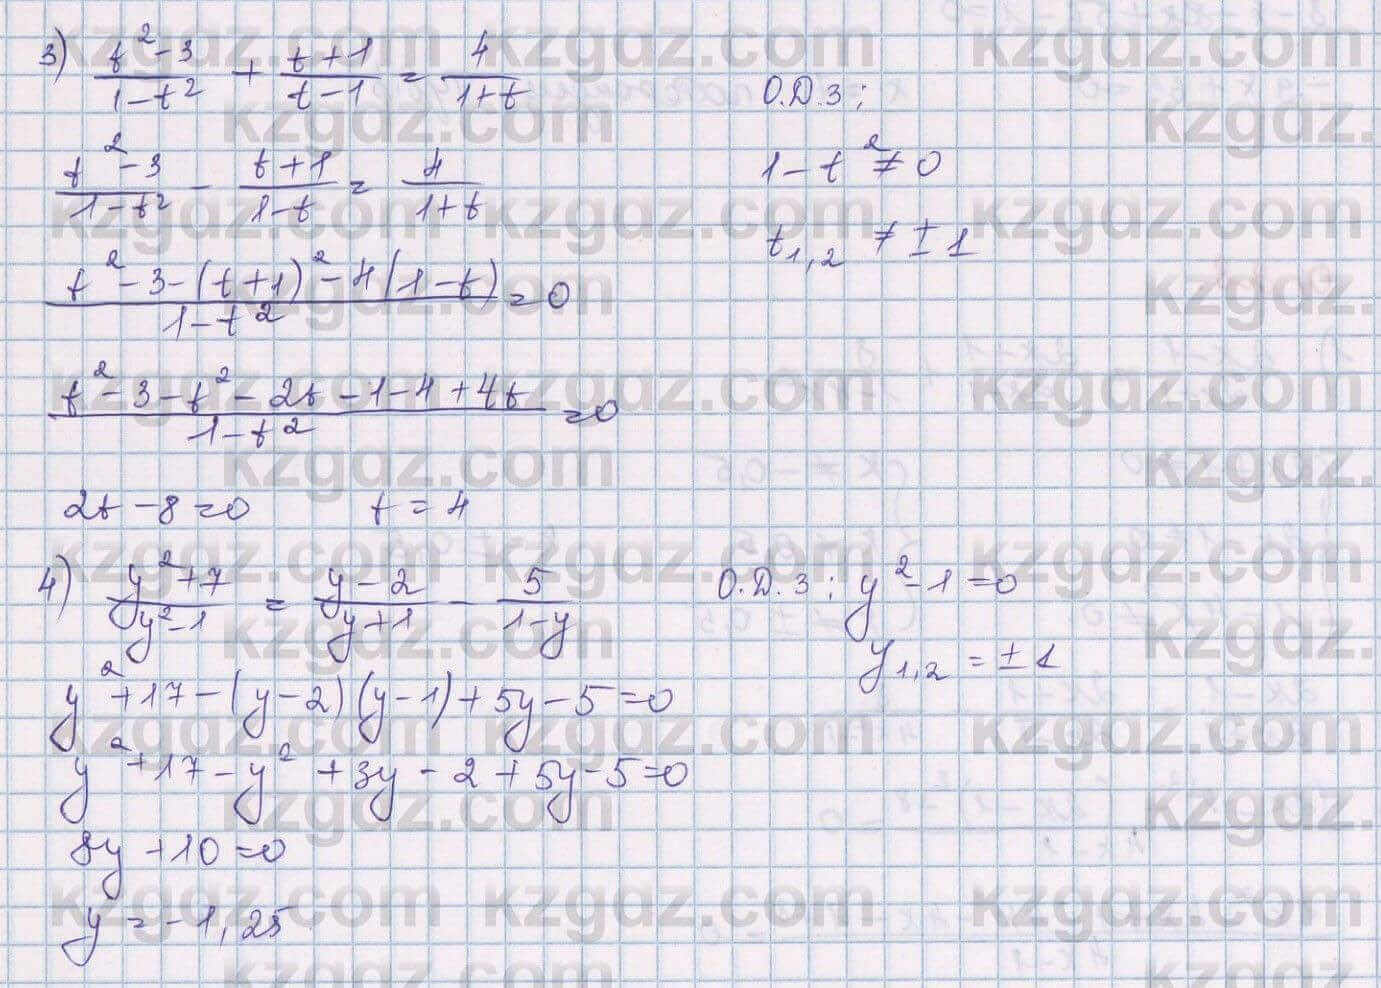 3) (t²-3)/(1-t²) + (t+1)/(t-1) = 4/(1+t)
О.Д.З:
(t²-3)/(1-t²) - (t+1)/(1-t) = 4/(1+t)
1-t² ≠ 0
t₁,₂ ≠ ±1
(t²-3-(t+1)²-4(1-t))/(1-t²) = 0
(t²-3-t²-2t-1-4+4t)/(1-t²) = 0
2t-8=0 t=4
4) (y²+7)/(y²-1) = (y-2)/(y+1) - 5/(1-y)
О.Д.З: y²-1=0
y₁,₂ = ±1
y²+17-(y-2)(y-1)+5y-5=0
y²+17-y²+3y-2+5y-5=0
8y+10=0
y=-1,25
kzgdz.com